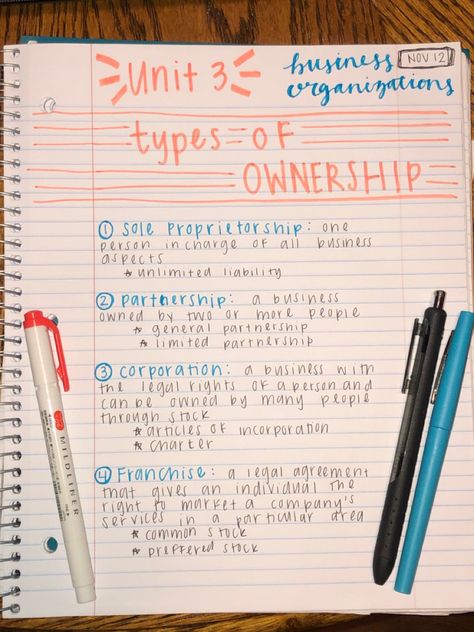 Unit 3
business
organizations
NOV 12
types of
OWNERSHIP
① Sole Proprietorship: one
person in charge of all business
aspects
* unlimited liability
② Partnership: a business
owned by two or more people
* general partnership
* limited partnership
③ Corporation: a business with
the legal rights of a person and
can be owned by many people
through stock
* articles of incorporation
* charter
④ Franchise: a legal agreement
that gives an individual the
right to market a company's
services in a particular area
* common stock
* preffered stock
MILDLINER